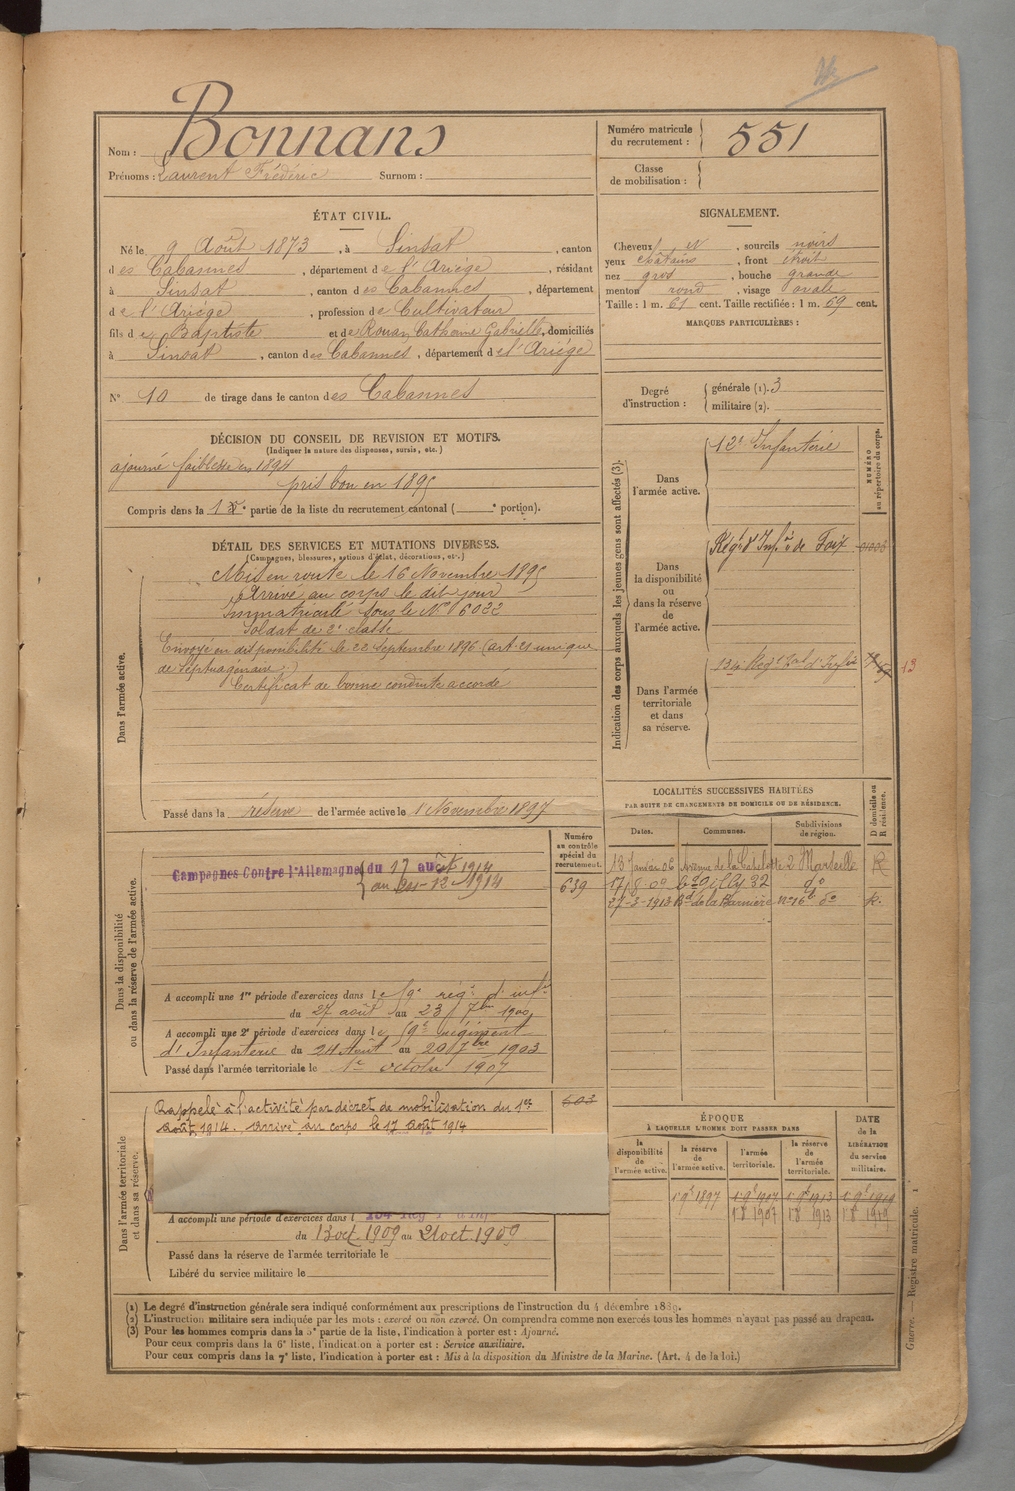 Nom : Bonnans
Prénoms : Laurent Frédéric Surnom :
Numéro matricule du recrutement : 551
Classe de mobilisation :
ÉTAT CIVIL.
Né le 9 Août 1873, à Sinsat, canton
des Cabannes, département de l'Ariège, résidant
à Sinsat, canton des Cabannes, département
de l'Ariège, profession de Cultivateur
fils de Baptiste et de Rouan Catherine Gabrielle, domiciliés
à Sinsat, canton des Cabannes, département de l'Ariège
N° 10 de tirage dans le canton des Cabannes
SIGNALEMENT.
Cheveux et, sourcils noirs
yeux châtains, front étroit
nez gros, bouche grande
menton rond, visage ovale
Taille : 1 m. 61 cent. Taille rectifiée : 1 m. 69 cent.
MARQUES PARTICULIÈRES :
Degré d'instruction : générale (1). 3
militaire (2).
DÉCISION DU CONSEIL DE REVISION ET MOTIFS.
(Indiquer la nature des dispenses, sursis, etc.)
ajourné faiblesse en 1894
pris bon en 1895
Compris dans la 1e partie de la liste du recrutement cantonal ( e portion).
DÉTAIL DES SERVICES ET MUTATIONS DIVERSES.
(Campagnes, blessures, actions d'éclat, décorations, etc.)
Dans l'armée active.
Mis en route le 16 Novembre 1895
Arrivé au corps le dit jour
Immatriculé sous le N° 6022
Soldat de 2e classe
Envoyé en disponibilité le 22 Septembre 1896 (art. 21 unique
de septuagénaire.)
Certificat de bonne conduite accordé
Passé dans la réserve de l'armée active le 1 Novembre 1897
Indication des corps auxquels les jeunes gens sont affectés (3).
NUMÉRO au répertoire du corps.
Dans l'armée active.
12e Infanterie
Dans la disponibilité ou dans la réserve de l'armée active.
Régt d'Infie de Foix
Dans l'armée territoriale et dans sa réserve.
134e Régt Tal d'Infie
13
LOCALITÉS SUCCESSIVES HABITÉES
PAR SUITE DE CHANGEMENTS DE DOMICILE OU DE RÉSIDENCE.
Dates. Communes. Subdivisions de région. D domicile ou R résidence.
18 Janvier 06 Avenue de la Capelette 2 Marseille R
17-8-09 Bd Gilly 32 do
27-3-1913 Bd de la Barnière no 16 do R.
Dans la disponibilité ou dans la réserve de l'armée active.
Numéro au contrôle spécial du recrutement.
639
Campagnes Contre l'Allemagne du 17 août 1914
au 21-12-1914
A accompli une 1re période d'exercices dans le 59e rég. d'infie
du 27 août au 23 7bre 1900
A accompli une 2e période d'exercices dans le 59e régiment
d'Infanterie du 24 Août au 20 7bre 1903
Passé dans l'armée territoriale le 1er octobre 1907
Dans l'armée territoriale et dans sa réserve.
603
Rappelé à l'activité par décret de mobilisation du 1er
Août 1914. Arrivé au corps le 17 Août 1914
A accompli une période d'exercices dans l
du 13 oct. 1909 au 21 oct. 1909
Passé dans la réserve de l'armée territoriale le
Libéré du service militaire le
ÉPOQUE
À LAQUELLE L'HOMME DOIT PASSER DANS
la disponibilité de l'armée active.
la réserve de l'armée active.
l'armée territoriale.
la réserve de l'armée territoriale.
DATE de la LIBÉRATION du service militaire.
1 9e 1897 1 9e 1907 1 9e 1913 1 9e 1919
1 8 1907 1 8 1913 1 8 1919
(1) Le degré d'instruction générale sera indiqué conformément aux prescriptions de l'instruction du 4 décembre 1889.
(2) L'instruction militaire sera indiquée par les mots : exercé ou non exercé. On comprendra comme non exercés tous les hommes n'ayant pas passé au drapeau.
(3) Pour les hommes compris dans la 5e partie de la liste, l'indication à porter est : Ajourné.
Pour ceux compris dans la 6e liste, l'indication à porter est : Service auxiliaire.
Pour ceux compris dans la 7e liste, l'indication à porter est : Mis à la disposition du Ministre de la Marine. (Art. 4 de la loi.)
Guerre. — Registre matricule. 1